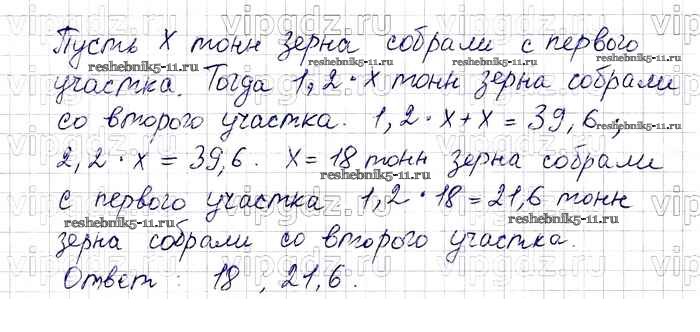 Пусть x тонн зерна собрали с первого
reshebnik5-11.ru reshebnik5-11.ru
участка. Тогда 1,2 · x тонн зерна собрали
со второго участка. 1,2 · x + x = 39,6 ;
reshebnik5-11.ru
2,2 · x = 39,6. x = 18 тонн зерна собрали
с первого участка 1,2 · 18 = 21,6 тонн
reshebnik5-11.ru reshebnik5-11.ru
зерна собрали со второго участка.
Ответ : 18 , 21,6.